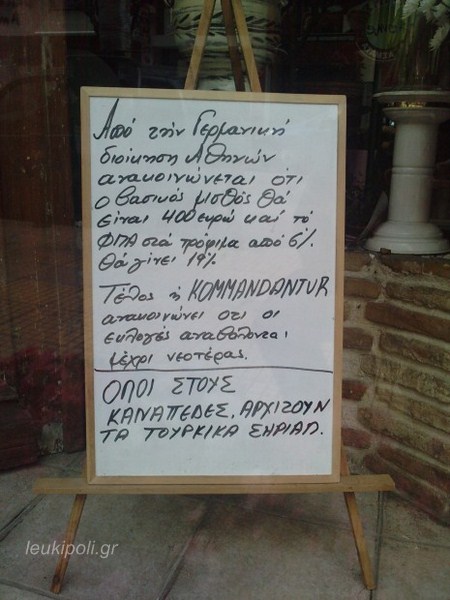 Από την Γερμανική
διοίκηση Αθηνών
ανακοινώνεται ότι
ο βασικός μισθός θά
είναι 400 ευρώ και τό
ΦΠΑ στά τρόφιμα από 6%
θά γίνει 19%
Τέλος ή KOMMANDANTUR
ανακοινώνει οτι οι
εκλογές αναβάλονται
μέχρι νεοτέρας.
ΟΛΟΙ ΣΤΟΥΣ
ΚΑΝΑΠΕΔΕΣ, ΑΡΧΙΖΟΥΝ
ΤΑ ΤΟΥΡΚΙΚΑ ΣΗΡΙΑΛ.
leukipoli.gr